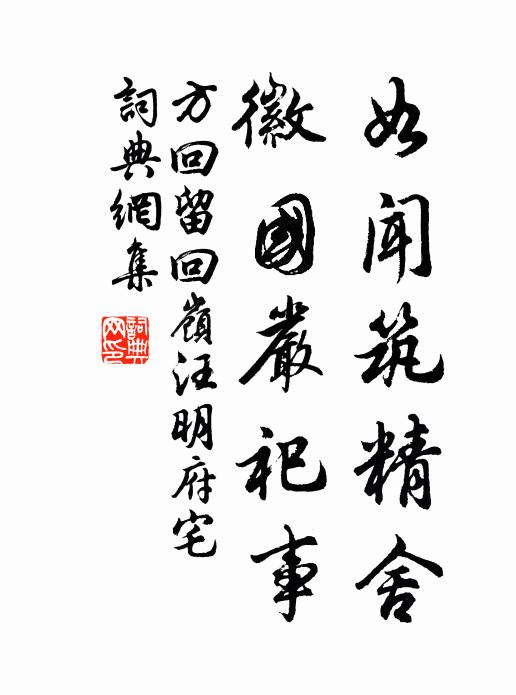 如聞筑精舍
徽國嚴祀事
方回留回嶺汪明府宅
詞典網集
詞典網印